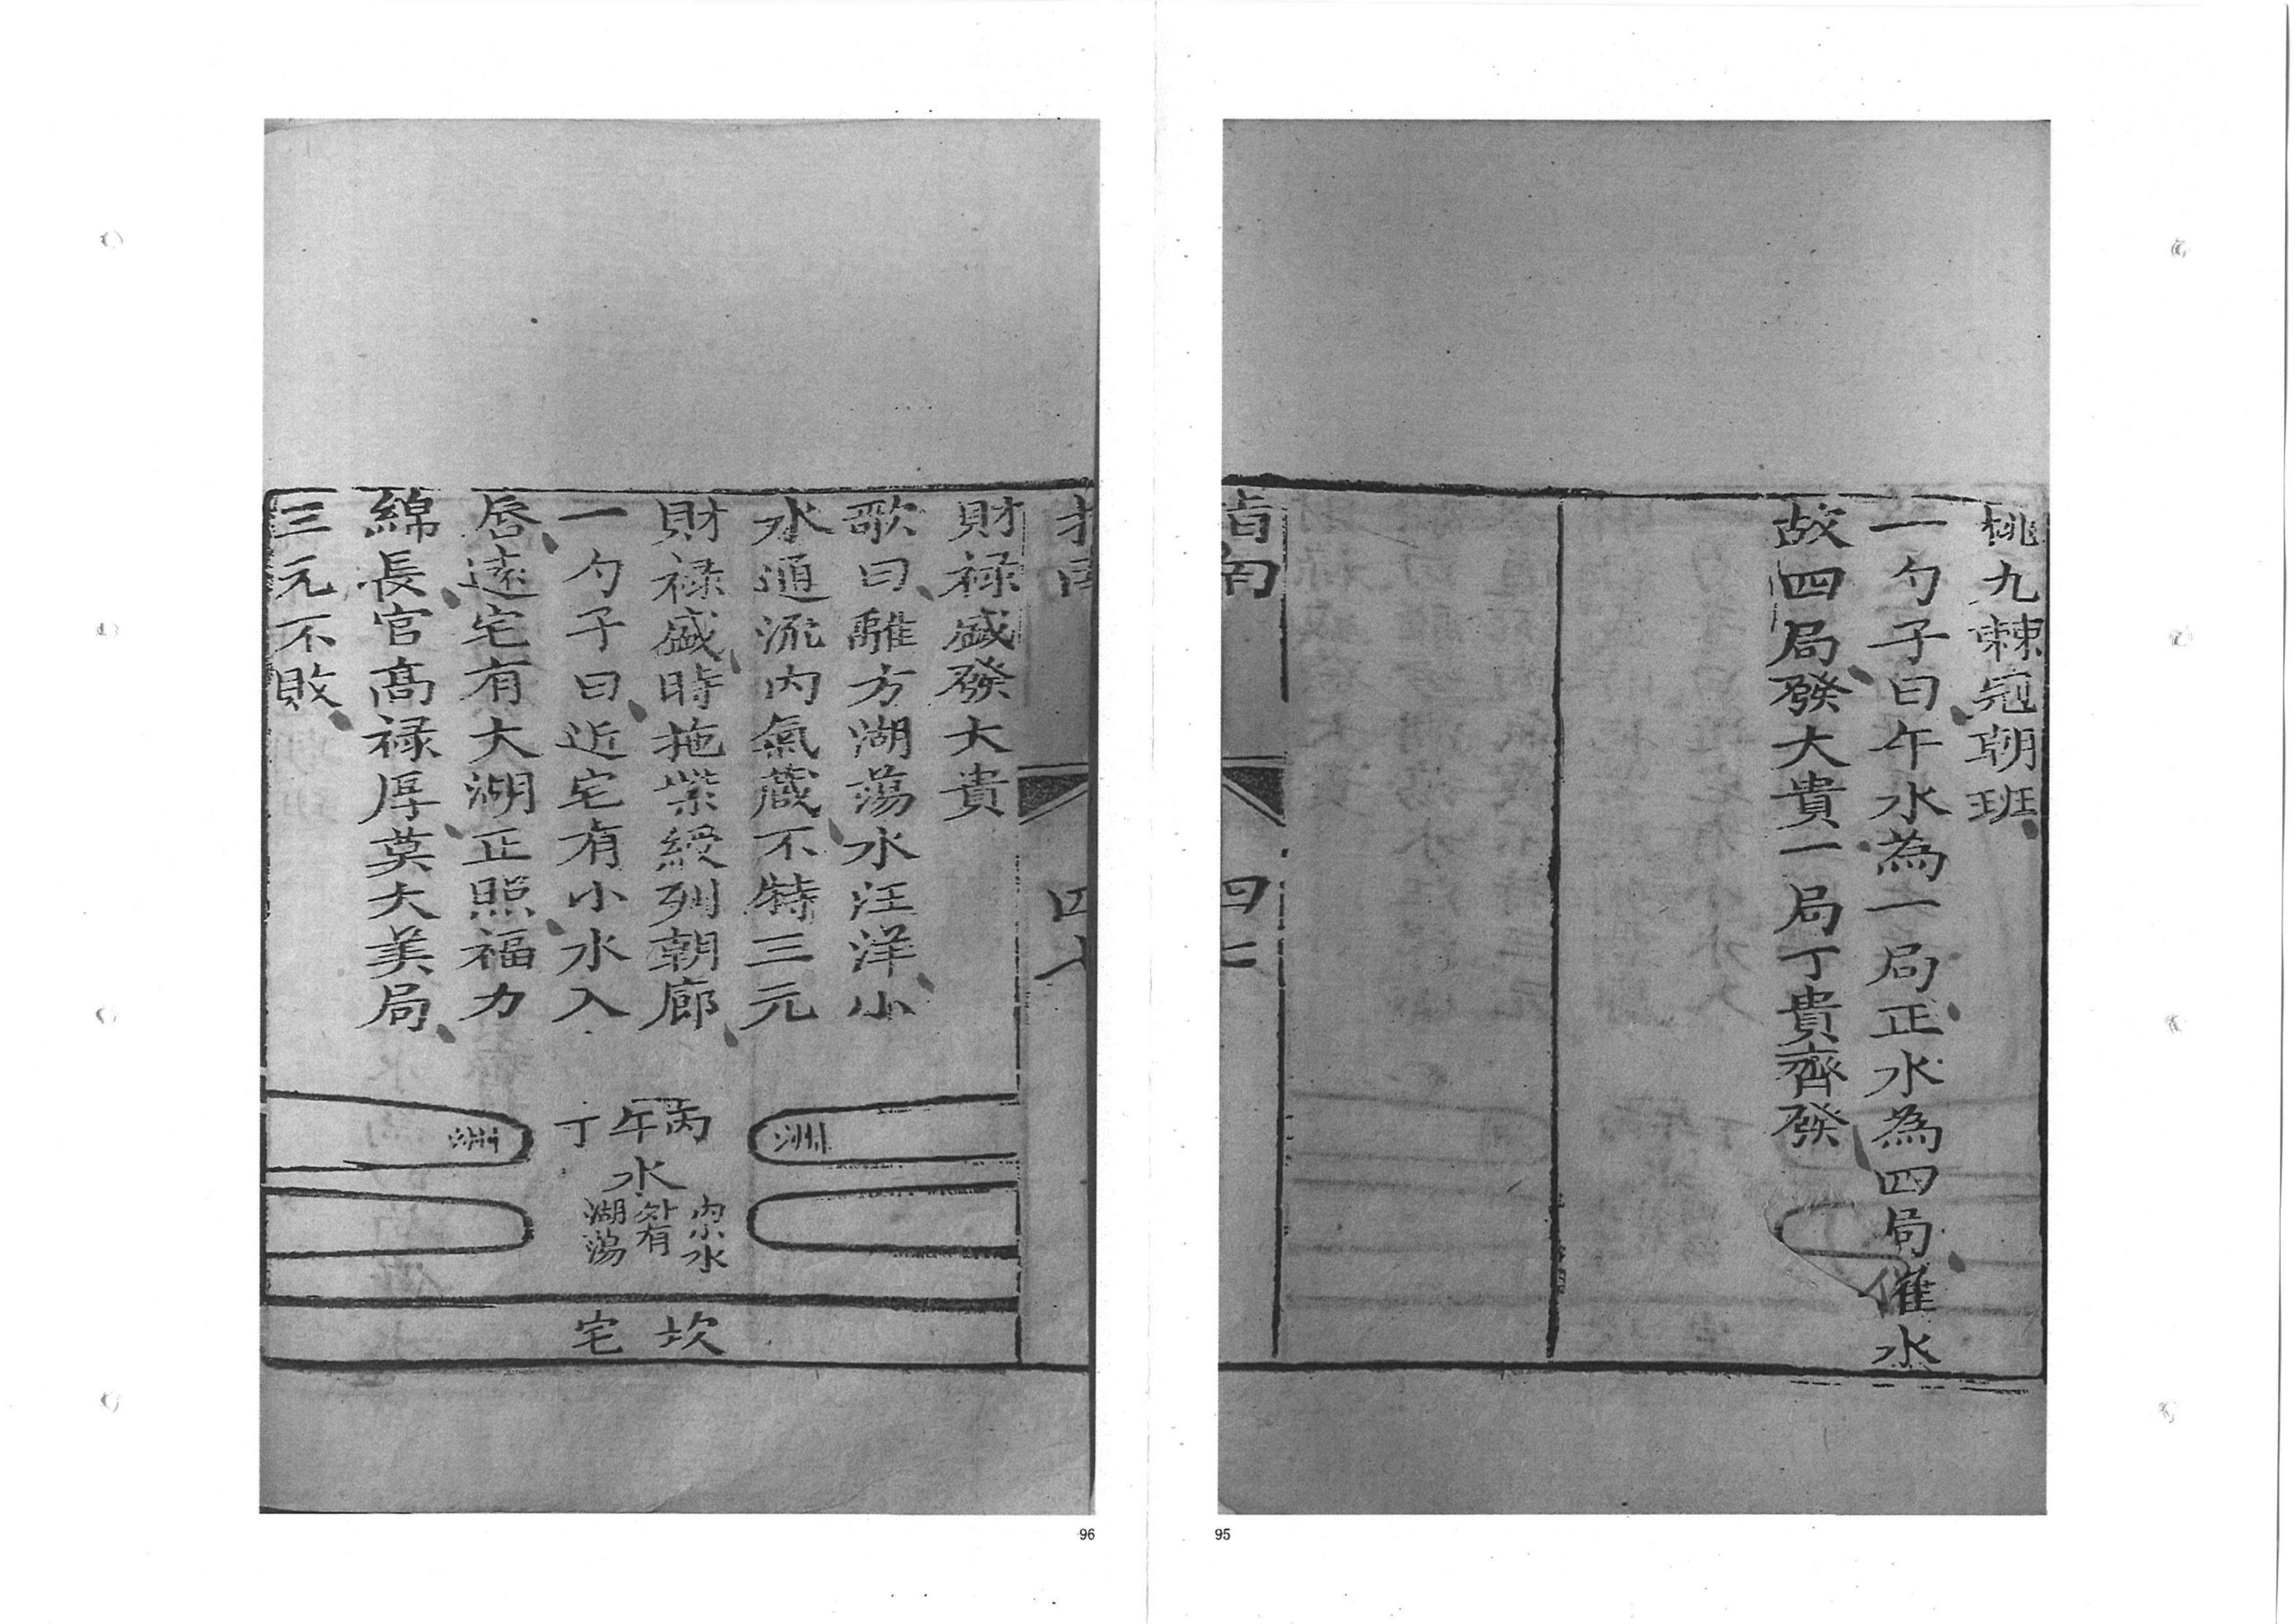 桃九棘冠朝班
一勺子曰午水為一局正水為四局催水
故四局發大貴一局丁貴齊發
指南
四七
95
財祿盛發大貴
歌曰離方湖蕩水汪洋小
水通流內氣藏不特三元
財祿盛時拖紫綬列朝廊
一勺子曰近宅有小水入
唇遠宅有大湖正照福力
綿長官高祿厚莫大美局
三元不敗
丙午丁
水
洲
洲
內小水
外有
湖蕩
坎宅
96